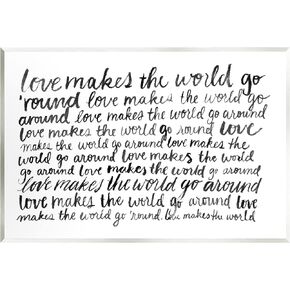 love makes the world go
'round love makes the world go
around love makes the world go around
love makes the world go round love
makes the world go around love makes the
world go around love makes the world
go around love makes the world go around
love makes the world go around
love makes the world go around love
makes the world go 'round. love makes the world